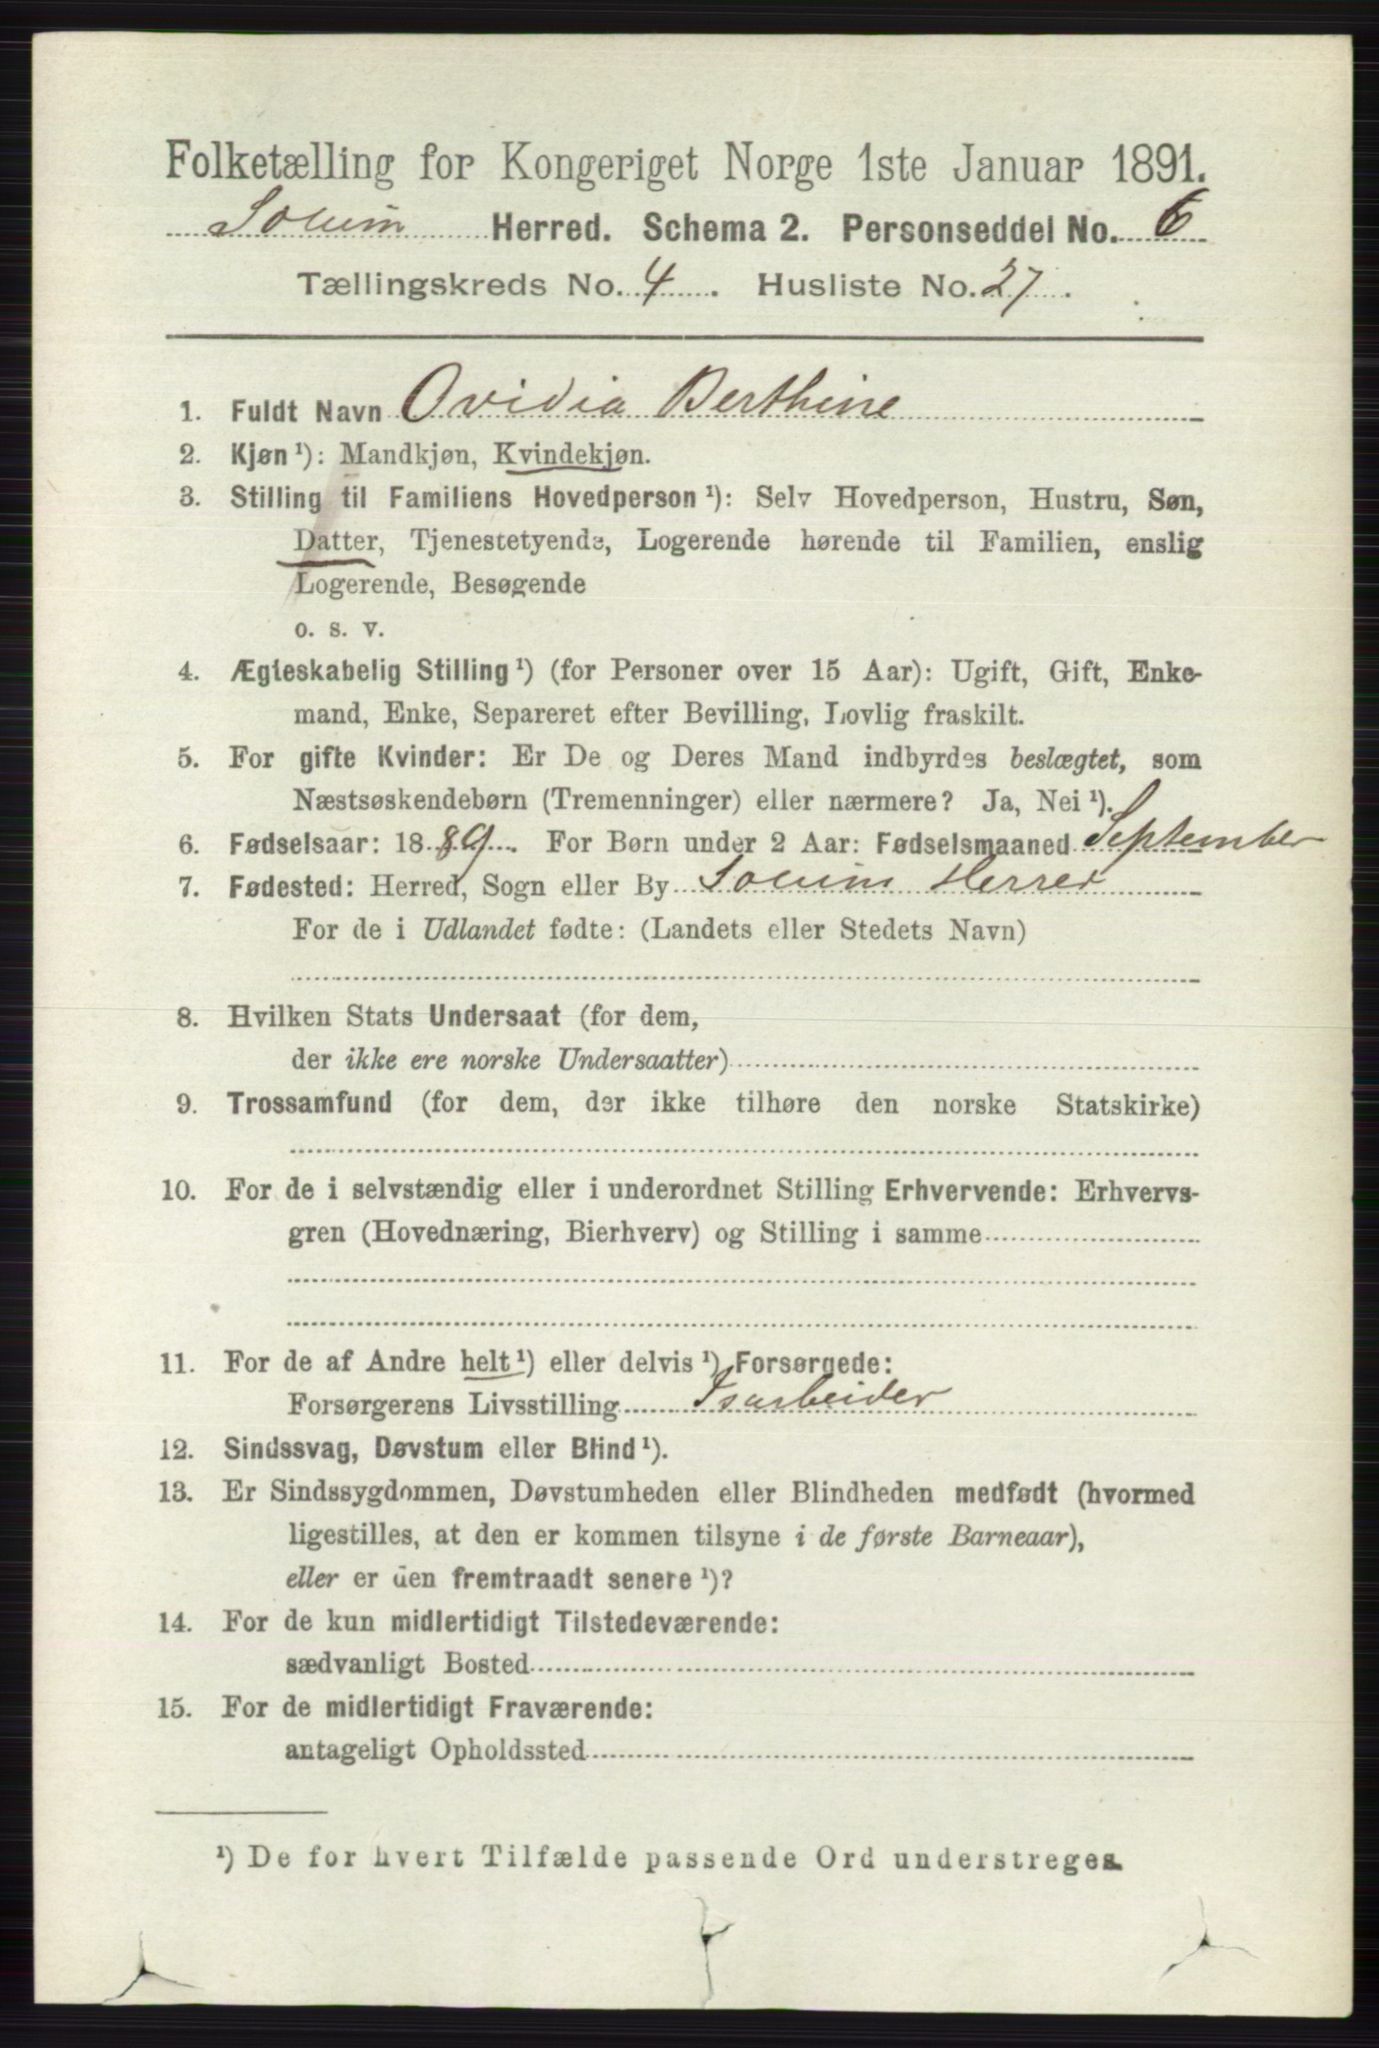 Folketælling for Kongeriget Norge 1ste Januar 1891.
Solum Herred. Schema 2. Personseddel No. 6
Tællingskreds No. 4. Husliste No. 27.
1. Fuldt Navn Ovidia Berthine
2. Kjøn¹): Mandkjøn, Kvindekjøn.
3. Stilling til Familiens Hovedperson¹): Selv Hovedperson, Hustru, Søn,
Datter, Tjenestetyende, Logerende hørende til Familien, enslig
Logerende, Besøgende
o. s. v.
4. Ægteskabelig Stilling¹) (for Personer over 15 Aar): Ugift, Gift, Enke-
mand, Enke, Separeret efter Bevilling, Lovlig fraskilt.
5. For gifte Kvinder: Er De og Deres Mand indbyrdes beslægtet, som
Næstsøskendebørn (Tremenninger) eller nærmere? Ja, Nei¹).
6. Fødselsaar: 1889. For Børn under 2 Aar: Fødselsmaaned September
7. Fødested: Herred, Sogn eller By Solum Herred
For de i Udlandet fødte: (Landets eller Stedets Navn)
8. Hvilken Stats Undersaat (for dem,
der ikke ere norske Undersaatter)
9. Trossamfund (for dem, der ikke tilhøre den norske Statskirke)
10. For de i selvstændig eller i underordnet Stilling Erhvervende: Erhvervs-
gren (Hovednæring, Bierhverv) og Stilling i samme
11. For de af Andre helt¹) eller delvis¹) Forsørgede:
Forsørgerens Livsstilling Isarbeider
12. Sindssvag, Døvstum eller Blind¹).
13. Er Sindssygdommen, Døvstumheden eller Blindheden medfødt (hvormed
ligestilles, at den er kommen tilsyne i de første Barneaar),
eller er den fremtraadt senere¹)?
14. For de kun midlertidigt Tilstedeværende:
sædvanligt Bosted
15. For de midlertidigt Fraværende:
antageligt Opholdssted
¹) De for hvert Tilfælde passende Ord understreges.